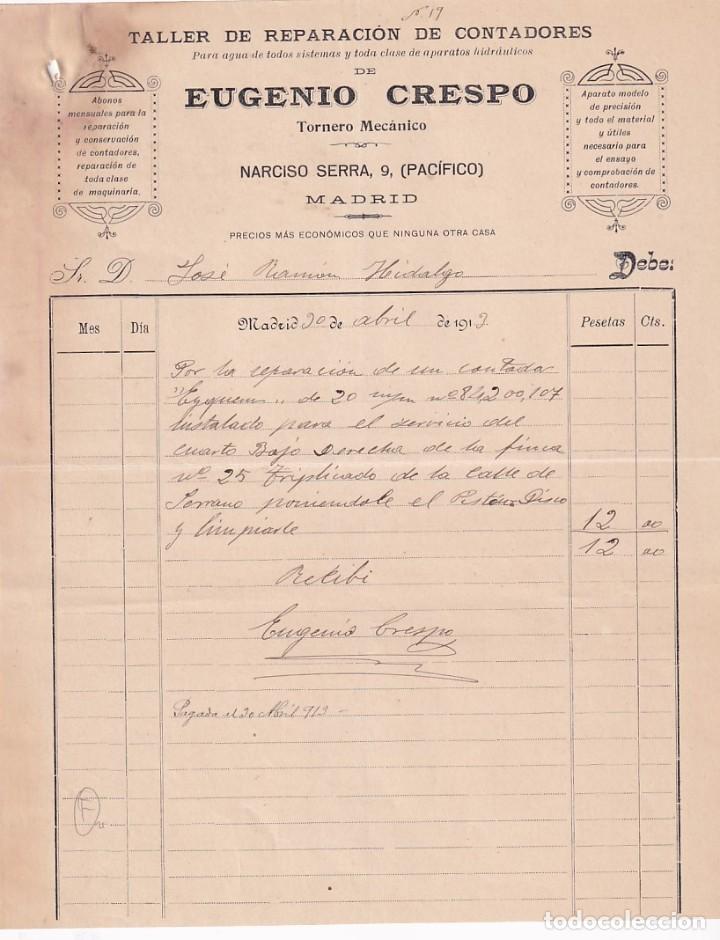 Nº 19
TALLER DE REPARACIÓN DE CONTADORES
Para agua de todos sistemas y toda clase de aparatos hidráulicos
DE
EUGENIO CRESPO
Tornero Mecánico
NARCISO SERRA, 9, (PACÍFICO)
MADRID
PRECIOS MÁS ECONÓMICOS QUE NINGUNA OTRA CASA
Abonos
mensuales para la
reparación
y conservación
de contadores,
reparación de
toda clase
de maquinaria.
Aparato modelo
de precisión
y todo el material
y útiles
necesario para
el ensayo
y comprobación de
contadores.
Sr. D. José Ramón Hidalgo Debe:
Mes Día Madrid 30 de abril de 1913. Pesetas Cts.
Por la reparación de un contador
"Eyquem" de 20 m/m nº 84,200,107
instalado para el servicio del
cuarto Bajo Derecha de la finca
nº 25 Triplicado de la Calle de
Serrano poniendole el Piston Disco
y limpiarle 12 00
12 00
Recibi
Eugenio Crespo
Pagada el 30 Abril 913 -
F
todocoleccion